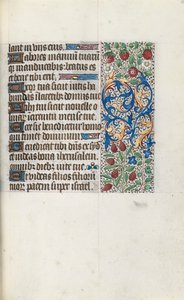 lant in viis eius
Labores manuum tuaru
quia manducabis beatus es
et bene tibi erit
Uxor tua sicut vitis ha
bundans in lateribus domus tue
Filii tui sicut nouelle o
liuarum in circuitu mense tue
Ecce sic benedicetur homo
qui timet dominum
Benedicat tibi dns ex syon
et uideas bona iherusalem
omnibus diebus vite tue
Et uideas filios filiorum
tuorum pacem super israel